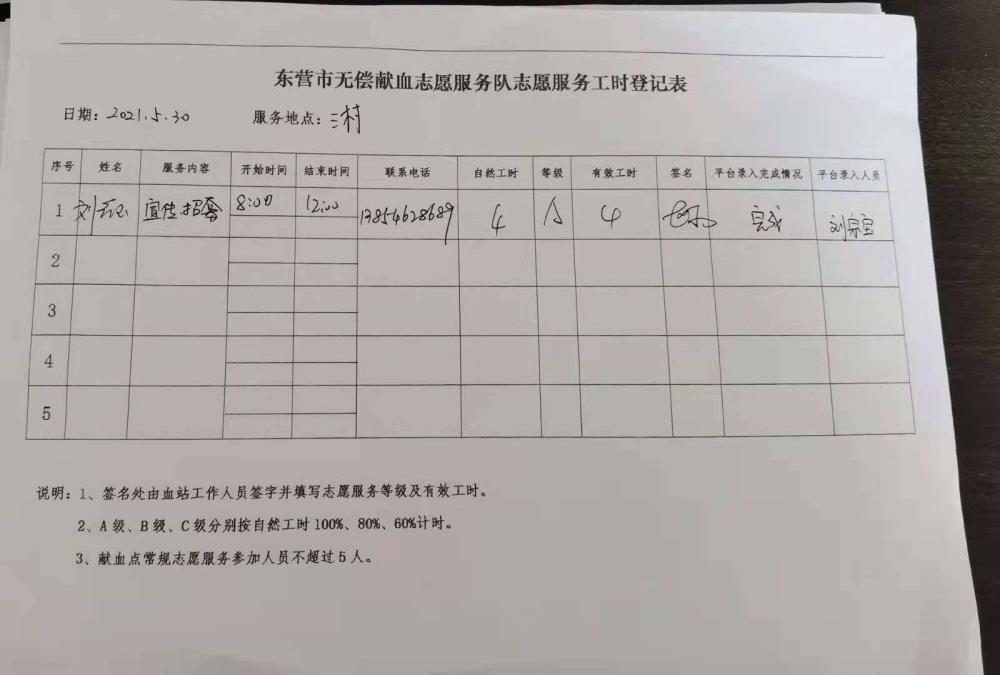 东营市无偿献血志愿服务队志愿服务工时登记表
日期：2021.5.30 服务地点：三村
序号 姓名 服务内容 开始时间 结束时间 联系电话 自然工时 等级 有效工时 签名 平台录入完成情况 平台录入人员
1 刘 宣传招募 8:00 12:00 13854628689 4 A 4 完成 刘宗宝
2
3
4
5
说明：1、签名处由血站工作人员签字并填写志愿服务等级及有效工时。
2、A 级、B 级、C 级分别按自然工时 100%、80%、60%计时。
3、献血点常规志愿服务参加人员不超过 5 人。